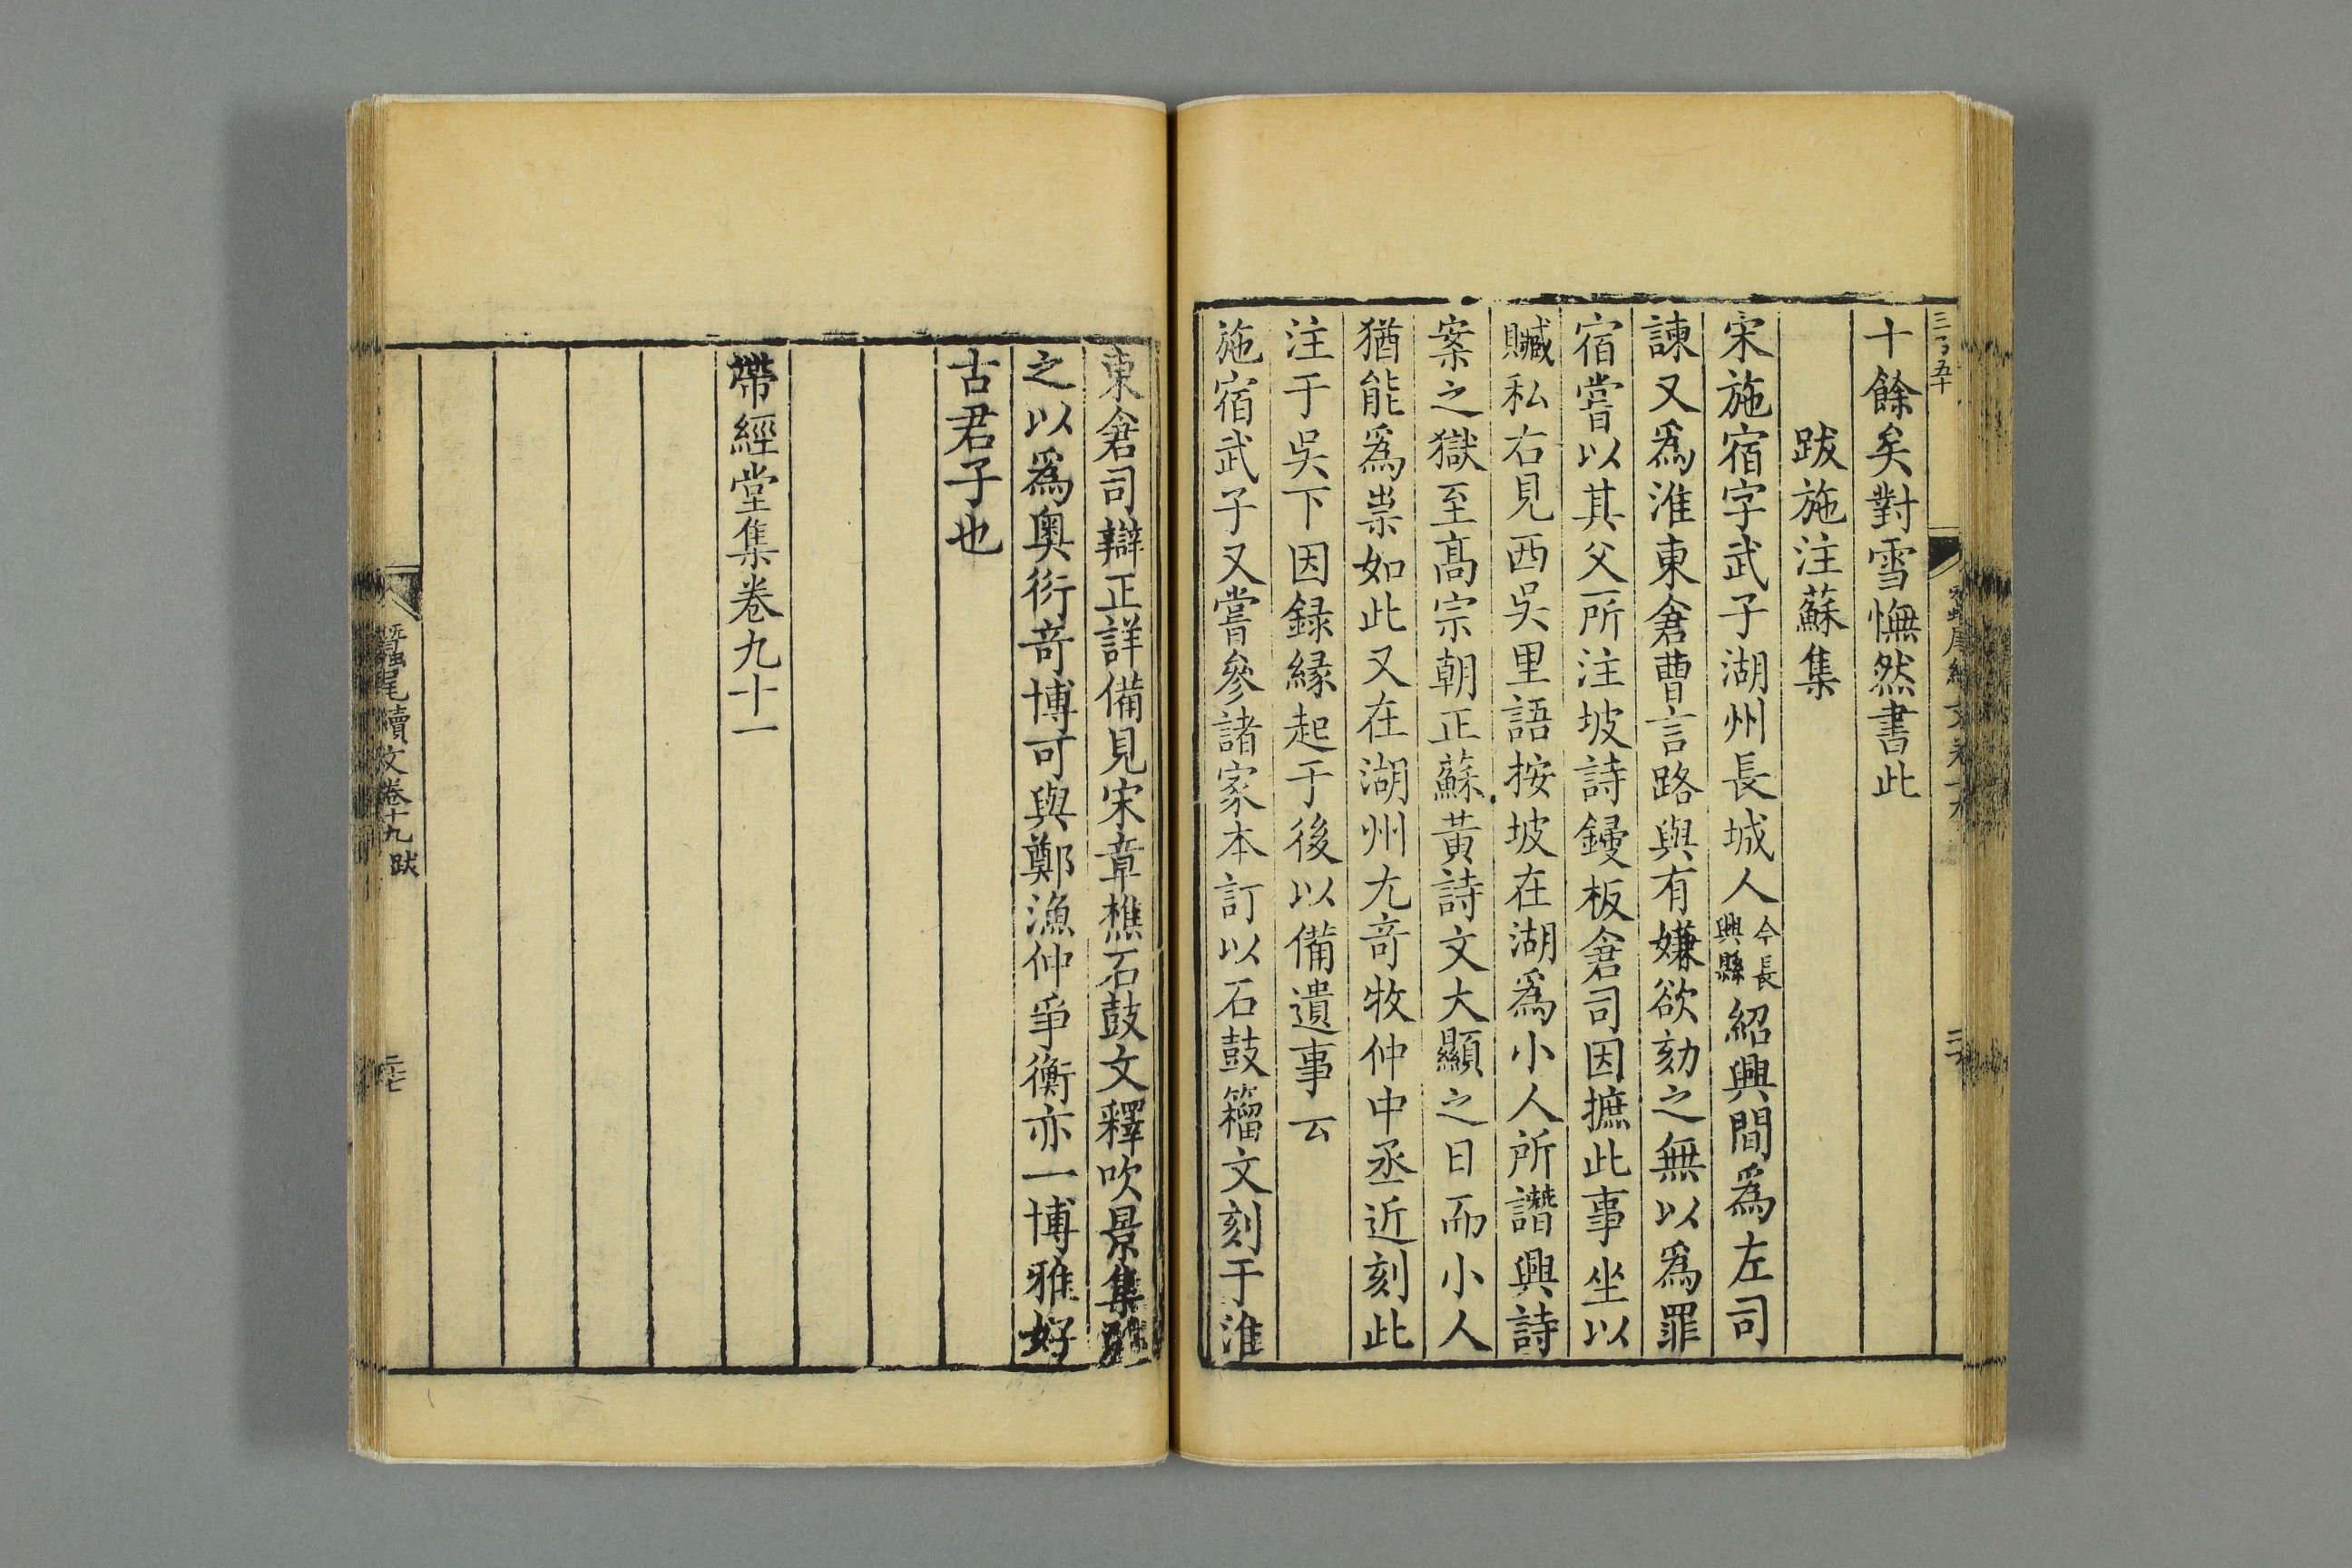 十餘矣對雪憮然書此
跋施注蘇集
宋施宿字武子湖州長城人今長興縣紹興間爲左司
諫又爲淮東倉曹言路與有嫌欲劾之無以爲罪
宿嘗以其父所注坡詩鋟板倉司因摭此事坐以
贓私右見西吳里語按坡在湖爲小人所譖興詩
案之獄至高宗朝正蘇黃詩文大顯之日而小人
猶能爲祟如此又在湖州尤竒牧仲中丞近刻此
注于吳下因録緣起于後以備遺事云
施宿武子又嘗參諸家本訂以石鼓籀文刻于淮
東倉司辯正詳備見宋章樵石鼓文釋吹景集
之以爲奧衍竒博可與鄭漁仲爭衡亦一博雅好
古君子也
帶經堂集卷九十一
蠶尾續文卷十九 跋
二七